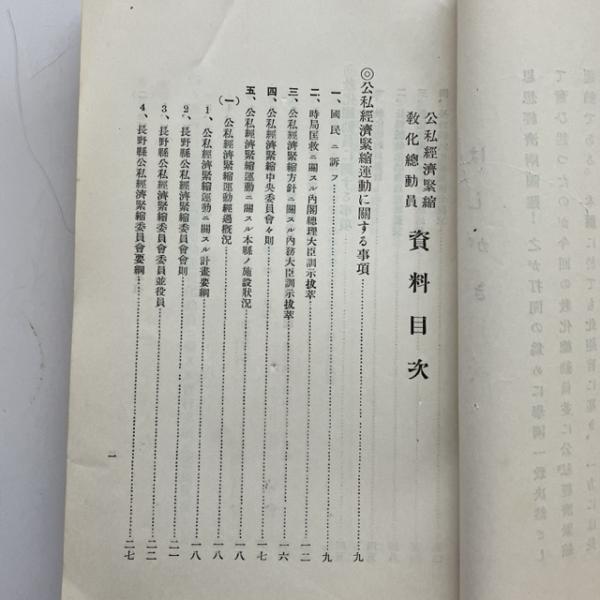 公私經濟緊縮
敎化總動員
資料目次
◎公私經濟緊縮運動に關する事項……九
一、國民ニ訴フ……九
二、時局匡救ニ關スル內閣總理大臣訓示拔萃……一二
三、公私經濟緊縮方針ニ關スル內務大臣訓示拔萃……一六
四、公私經濟緊縮中央委員會々則……一七
五、公私經濟緊縮運動ニ關スル本縣ノ施設狀況……一八
(一)公私經濟緊縮運動經過槪況……一八
1、公私經濟緊縮運動ニ關スル計畫要綱……一八
2、長野縣公私經濟緊縮委員會會則……二一
3、長野縣公私經濟緊縮委員會委員並役員……二二
4、長野縣公私經濟緊縮委員會要綱……二七
一